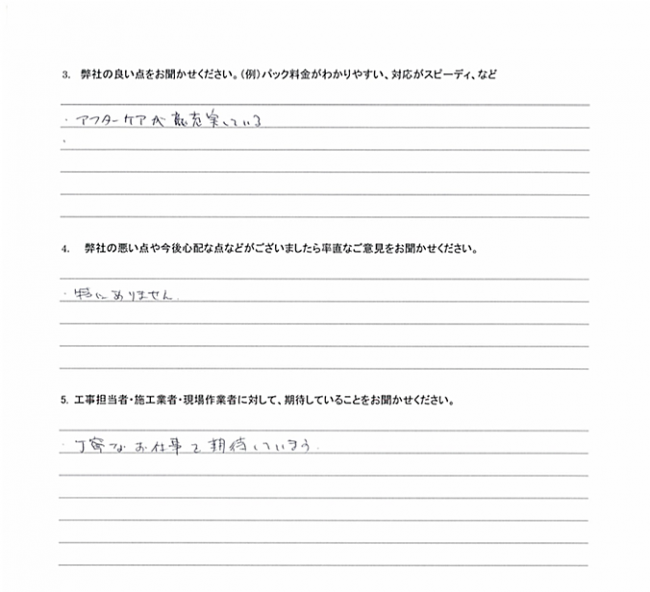 3. 弊社の良い点をお聞かせください。(例)パック料金がわかりやすい、対応がスピーディ、など
・アフターケアが充実している
・
4. 弊社の悪い点や今後心配な点などがございましたら率直なご意見をお聞かせください。
・特にありません.
5. 工事担当者・施工業者・現場作業者に対して、期待していることをお聞かせください。
・丁寧なお仕事を期待しています.